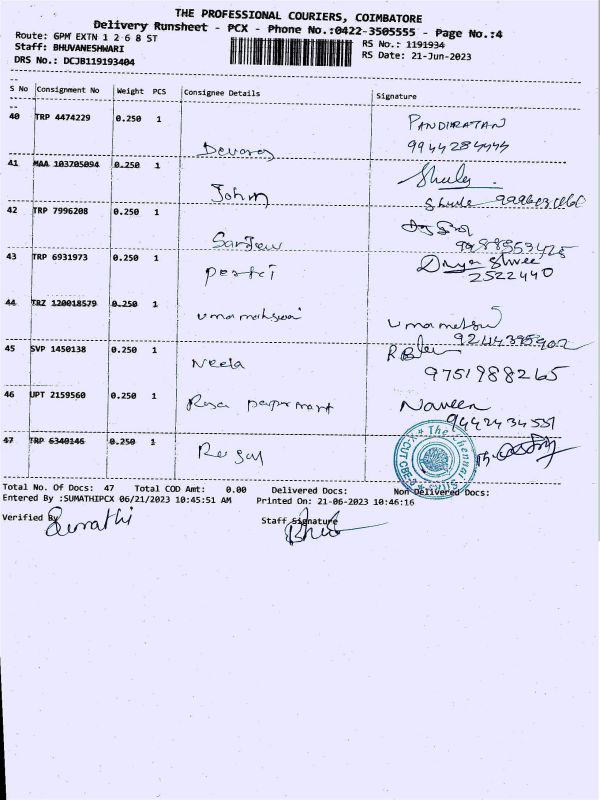 THE PROFESSIONAL COURIERS, COIMBATORE
Delivery Runsheet - PCX - Phone No.:0422-3505555 - Page No.:4
Route: GPM EXTN 1 2 6 8 ST
RS No.: 1191934
Staff: BHUVANESHWARI
RS Date: 21-Jun-2023
DRS No.: DCJB119193404
S No Consignment No Weight PCS Consignee Details Signature
40 TRP 4474229 0.250 1 Devaraj PANDIRATAN
9944284444
41 MAA 103705094 0.250 1 John
42 TRP 7996208 0.250 1 Sanjeev
43 TRP 6931973 0.250 1 perfect Divya Shree
2522440
44 TRZ 120018579 0.250 1 umamaheswari
45 SVP 1450138 0.250 1 Neela
9751988265
46 UPT 2159560 0.250 1 Rosa Naveen
9442434551
47 TRP 6340146 0.250 1
The Chennai Silks
Total No. Of Docs: 47 Total COD Amt: 0.00 Delivered Docs: Non Delivered Docs:
Entered By :SUMATHIPCX 06/21/2023 10:45:51 AM Printed On: 21-06-2023 10:46:16
Verified By Sumathi Staff Signature